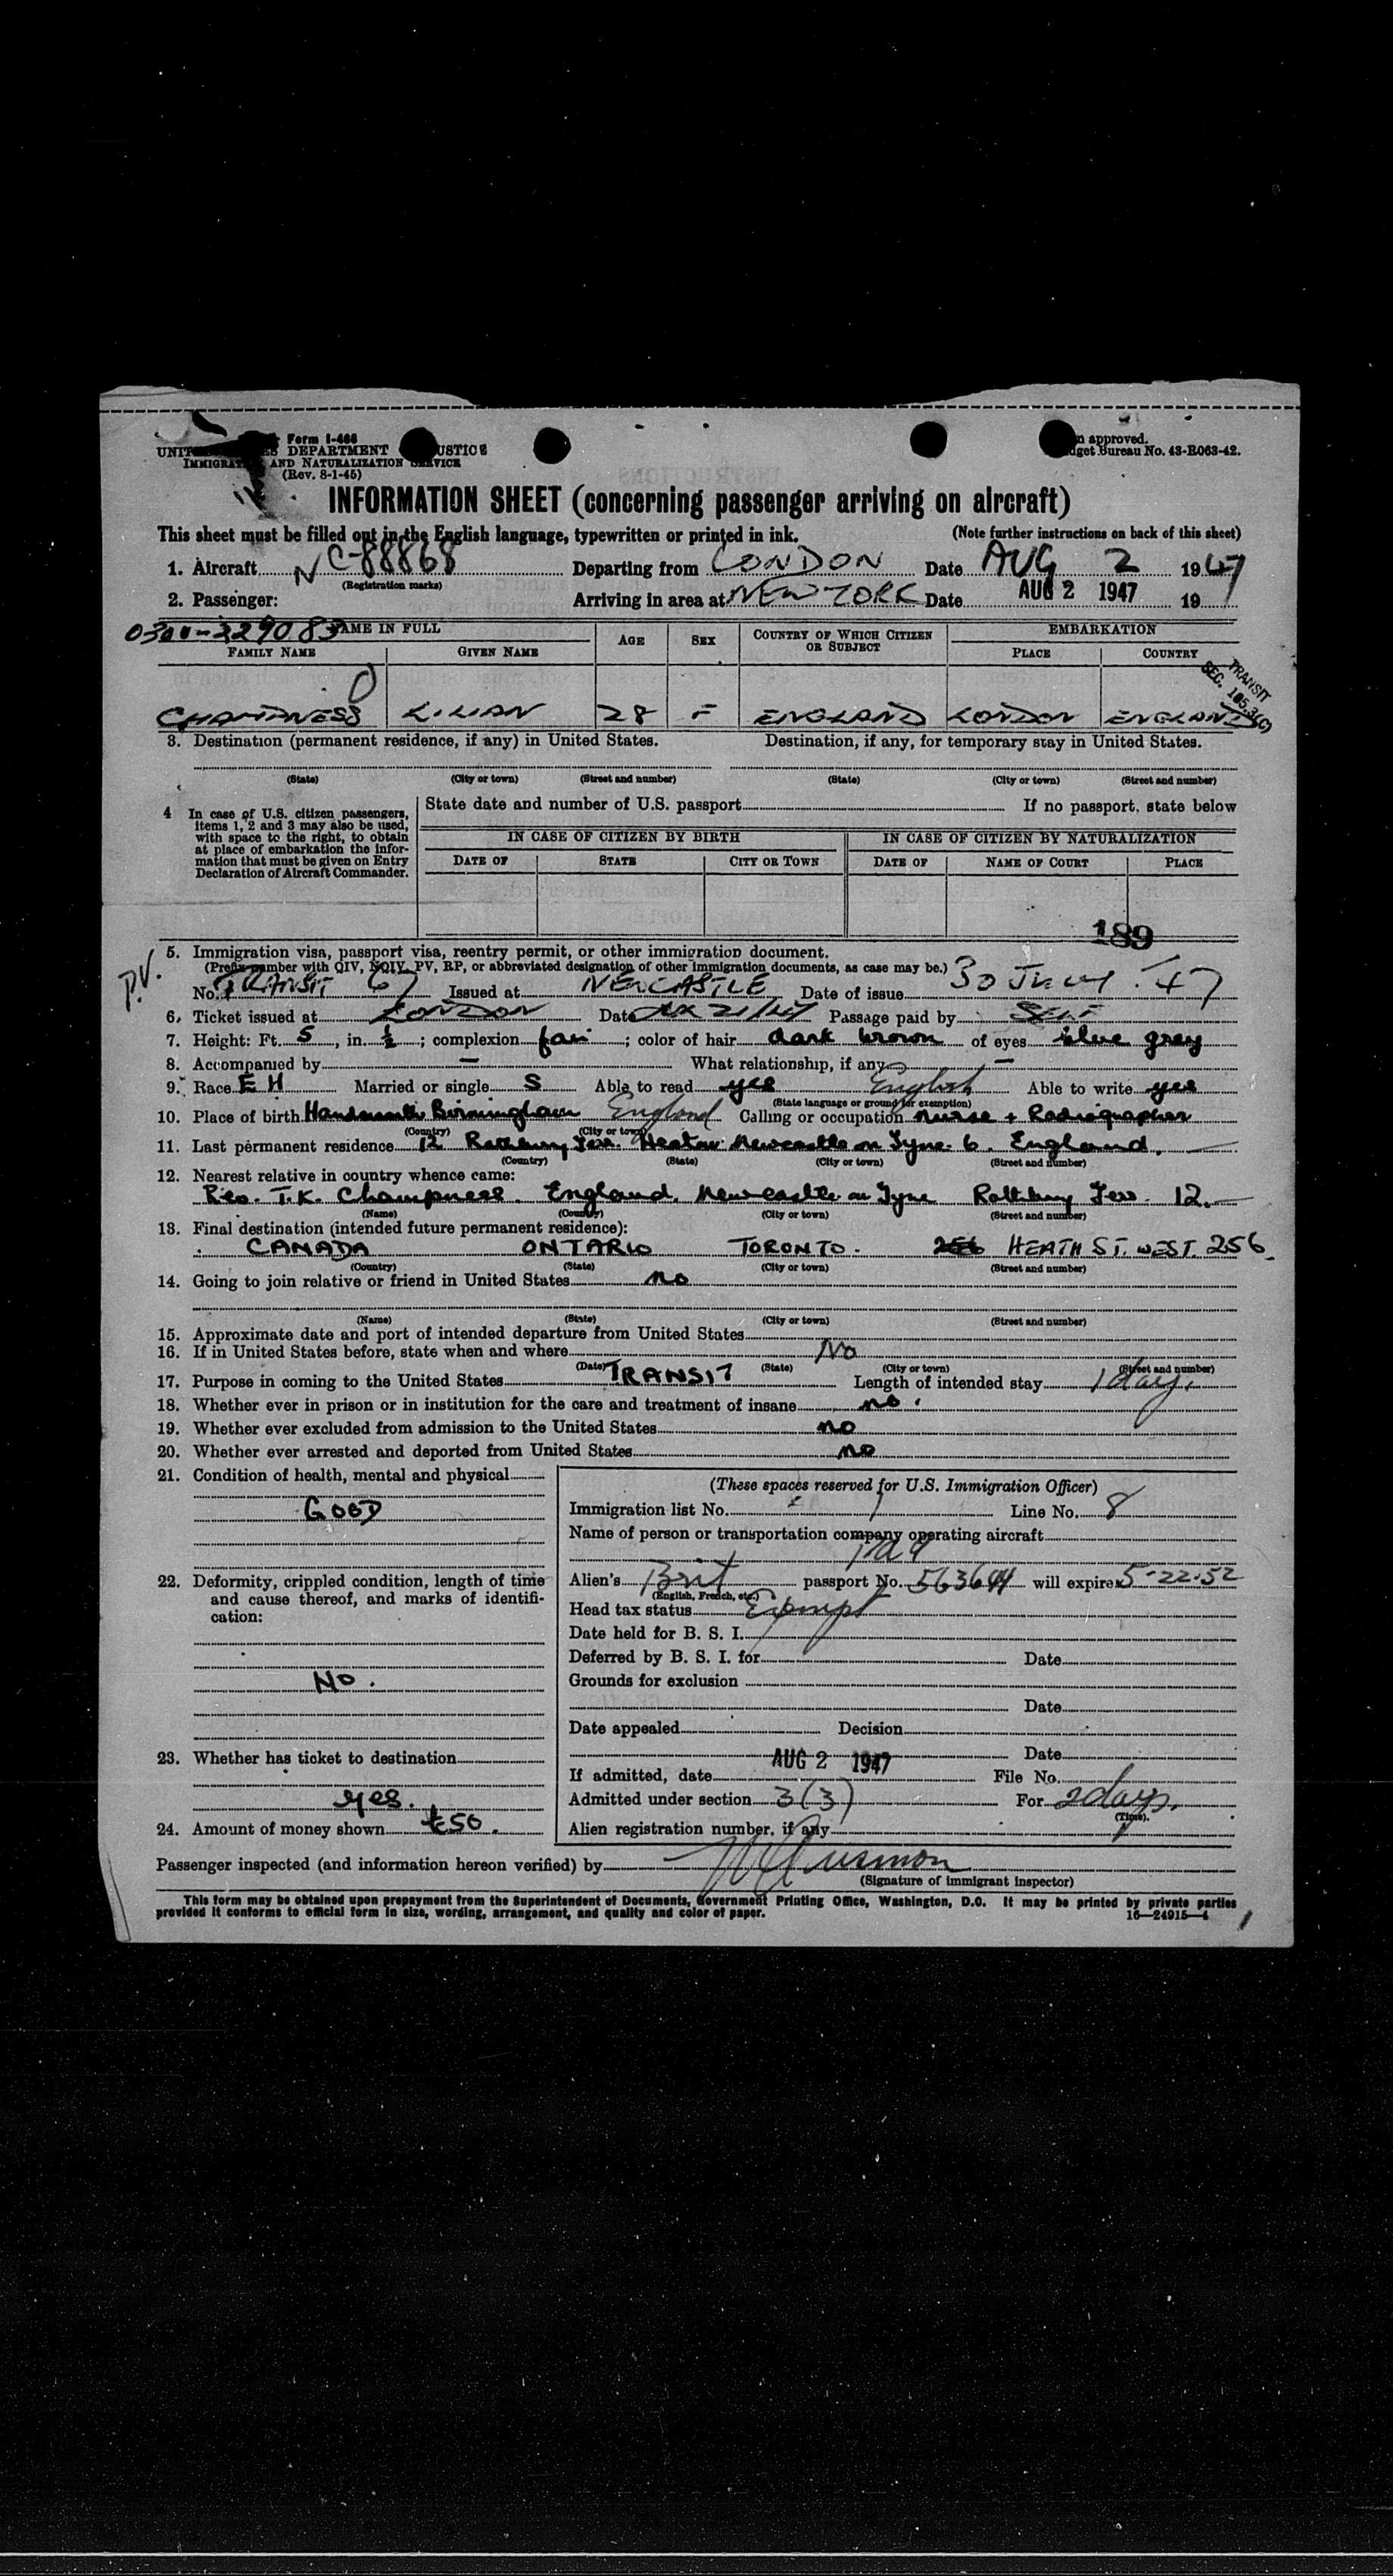 Form I-466
DEPARTMENT JUSTICE
IMMIGRATION AND NATURALIZATION SERVICE
(Rev. 8-1-45)
approved.
Budget Bureau No. 43-R063-42.
INFORMATION SHEET (concerning passenger arriving on aircraft)
This sheet must be filled out in the English language, typewritten or printed in ink. (Note further instructions on back of this sheet)
1. Aircraft NC-88868 Departing from LONDON Date AUG 2 1947
(Registration marks)
2. Passenger: Arriving in area at NEW YORK Date AUG 2 1947 19
0300-329083 NAME IN FULL AGE SEX COUNTRY OF WHICH CITIZEN OR SUBJECT EMBARKATION
FAMILY NAME GIVEN NAME PLACE COUNTRY
TRANSIT
SEC. 105.3(C)
CHAMPNESS LILIAN 28 F ENGLAND LONDON ENGLAND
3. Destination (permanent residence, if any) in United States. Destination, if any, for temporary stay in United States.
(State) (City or town) (Street and number) (State) (City or town) (Street and number)
4 In case of U.S. citizen passengers, items 1, 2 and 3 may also be used, with space to the right, to obtain at place of embarkation the information that must be given on Entry Declaration of Aircraft Commander.
State date and number of U.S. passport If no passport, state below
IN CASE OF CITIZEN BY BIRTH IN CASE OF CITIZEN BY NATURALIZATION
DATE OF STATE CITY OR TOWN DATE OF NAME OF COURT PLACE
189
P.V.
5. Immigration visa, passport visa, reentry permit, or other immigration document.
(Prefix number with QIV, NQIV, PV, RP, or abbreviated designation of other immigration documents, as case may be.)
No. TRANSIT 67 Issued at NEWCASTLE Date of issue 30 July. 47
6. Ticket issued at LONDON Date Passage paid by SELF
7. Height: Ft. 5, in. ½; complexion fair; color of hair dark brown of eyes blue grey
8. Accompanied by — What relationship, if any —
9. Race E H Married or single S Able to read yes English Able to write yes
(State language or ground for exemption)
10. Place of birth Handsworth Birmingham England Calling or occupation Nurse + Radiographer
(Country) (City or town)
11. Last permanent residence 12 Rothbury Terr. Heaton Newcastle on Tyne. 6. England.
(Country) (State) (City or town) (Street and number)
12. Nearest relative in country whence came:
Rev. T.K. Champness. England. Newcastle on Tyne Rothbury Terr. 12.
(Name) (Country) (City or town) (Street and number)
13. Final destination (intended future permanent residence):
CANADA ONTARIO TORONTO. 256 HEATH ST. WEST. 256.
(Country) (State) (City or town) (Street and number)
14. Going to join relative or friend in United States no
(Name) (State) (City or town) (Street and number)
15. Approximate date and port of intended departure from United States
16. If in United States before, state when and where No
(Date) (State) (City or town) (Street and number)
17. Purpose in coming to the United States TRANSIT Length of intended stay 1 day.
18. Whether ever in prison or in institution for the care and treatment of insane no.
19. Whether ever excluded from admission to the United States no
20. Whether ever arrested and deported from United States no
21. Condition of health, mental and physical
GOOD
22. Deformity, crippled condition, length of time and cause thereof, and marks of identification:
NO.
23. Whether has ticket to destination
yes.
24. Amount of money shown £50.
(These spaces reserved for U.S. Immigration Officer)
Immigration list No. 1 Line No. 8
Name of person or transportation company operating aircraft
Alien's Brit passport No. will expire 5-22-52
(English, French, etc.)
Head tax status Exempt
Date held for B. S. I.
Deferred by B. S. I. for Date
Grounds for exclusion
Date
Date appealed Decision
Date
If admitted, date AUG 2 1947 File No.
Admitted under section 3(3) For 2 days.
(Time)
Alien registration number, if any
Passenger inspected (and information hereon verified) by
(Signature of immigrant inspector)
This form may be obtained upon prepayment from the Superintendent of Documents, Government Printing Office, Washington, D.C. It may be printed by private parties
provided it conforms to official form in size, wording, arrangement, and quality and color of paper. 16—24915-1